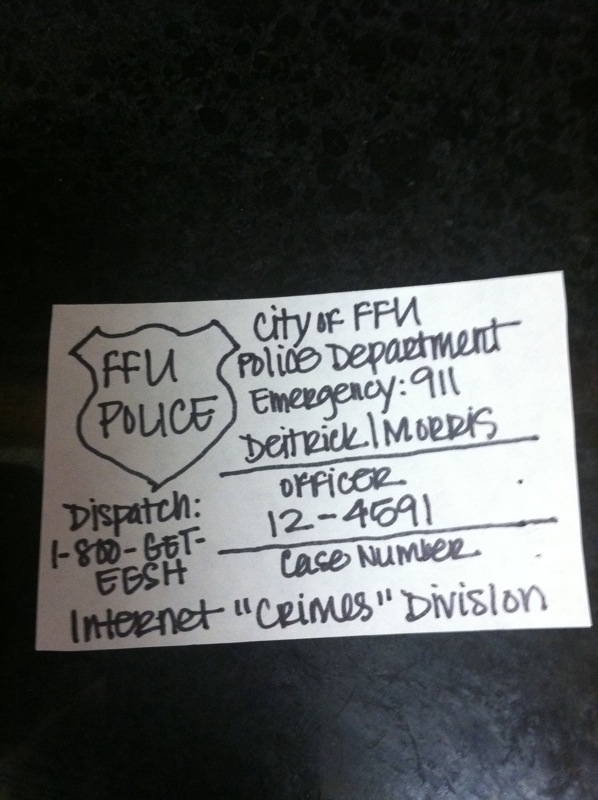 FFU
POLICE
City of FFU
Police Department
Emergency: 911
Deitrick/Morris
Officer
12-4591
Case Number
Dispatch:
1-800-GET-
EGSH
Internet "Crimes" Division